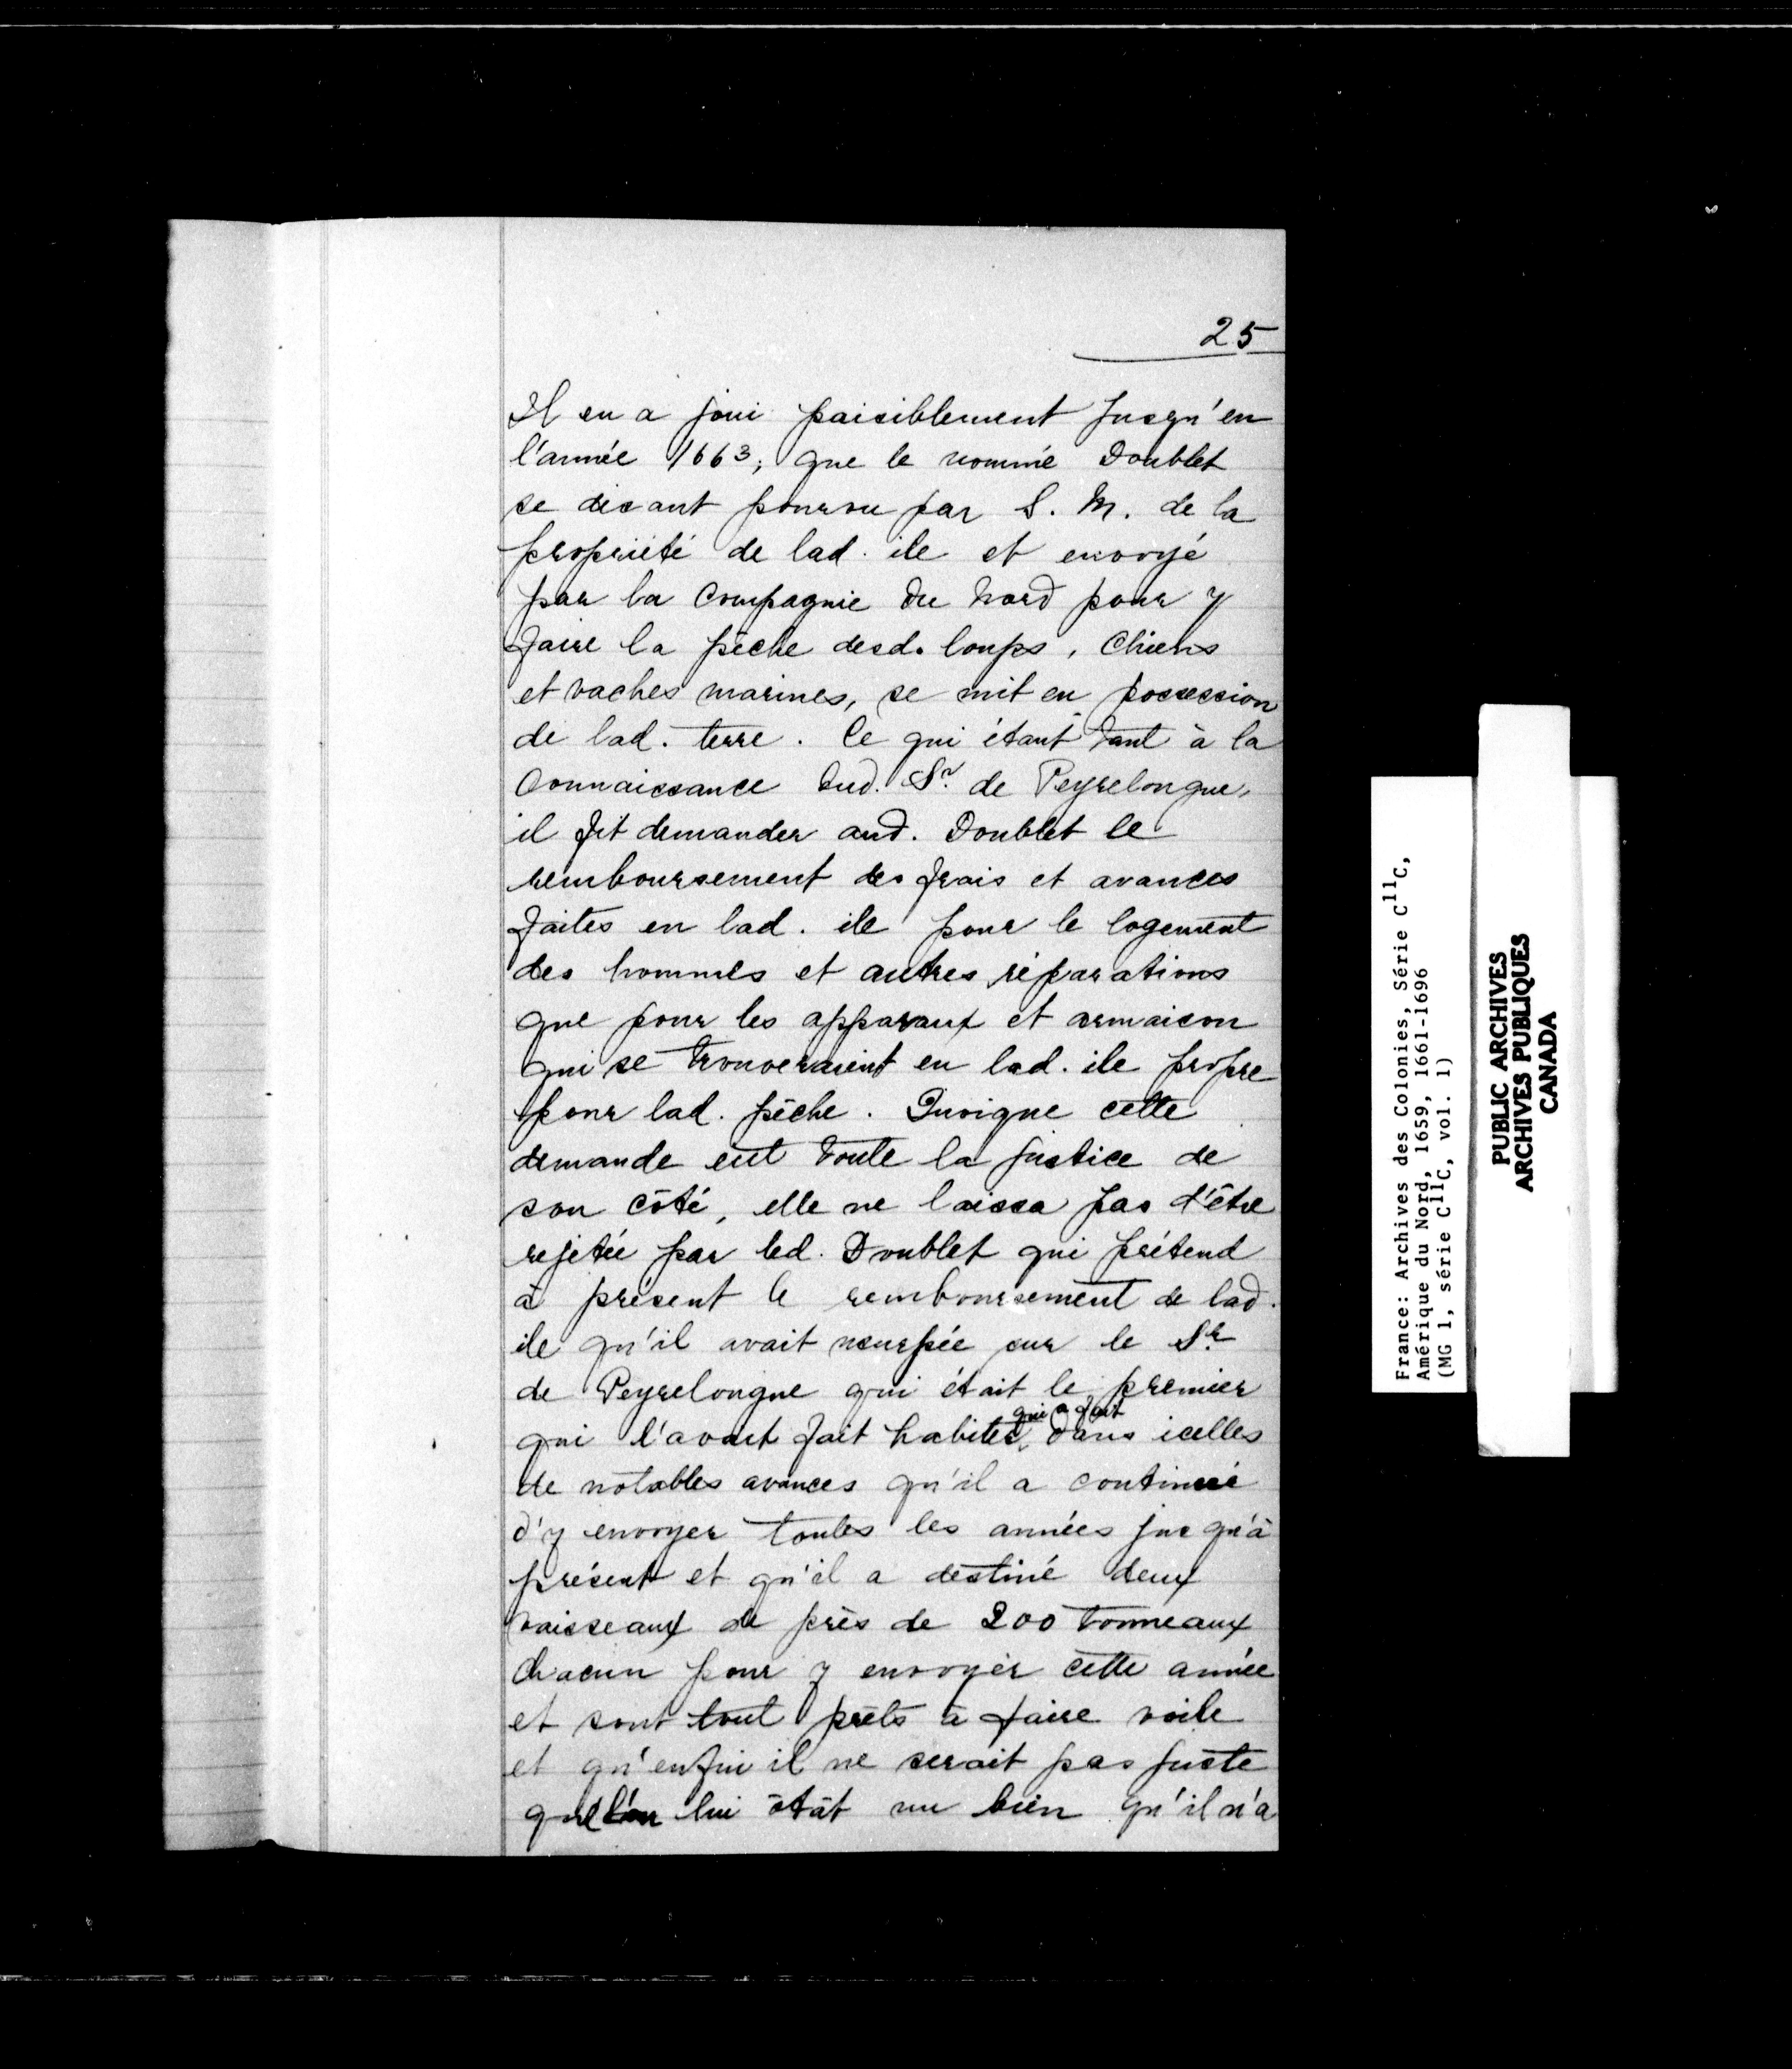 25
Il en a joui paisiblement jusqu'en
l'année 1663; que le nommé Doublet
se disant pourvu par S. M. de la
propriété de lad. ile et envoyé
par la Compagnie du Nord pour y
faire la pêche desd. loups, Chiens
et vaches marines, se mit en possession
de lad. terre. Ce qui étant tant à la
Connaissance dud. Sr. de Peyrelongue,
il fit demander aud. Doublet le
remboursement des frais et avances
faites en lad. ile pour le logement
des hommes et autres réparations
que pour les apparaux et armaison
qui se trouveraient en lad. ile propre
pour lad. pêche. Quoique cette
demande eut toute la justice de
son côté, elle ne laissa pas d'être
rejetée par led. Doublet qui prétend
à présent le remboursement de lad.
ile qu'il avait usurpée sur le Sr.
de Peyrelongue qui était le premier
qui l'avait fait habiter, qui a fait dans icelles
de notables avances qu'il a continué
d'y envoyer toutes les années jusqu'à
présent et qu'il a destiné deux
vaisseaux de près de 200 tonneaux
chacun pour y envoyer cette année
et sont tout prêts à faire voile
et qu'enfin il ne serait pas juste
que l'on lui ôtât un bien qu'il n'a
France: Archives des Colonies, Série C11C,
Amérique du Nord, 1659, 1661-1696
(MG 1, série C11C, vol. 1)
PUBLIC ARCHIVES
ARCHIVES PUBLIQUES
CANADA